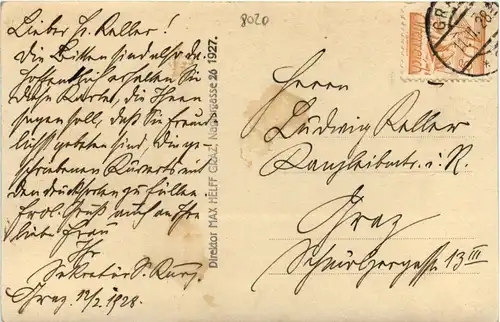 8020
Lieber H. Keller!
Die Bitten sind also da
hoffentlich erhalten Sie
diese Karte, die Ihnen
sagen soll, daß Sie freund-
lichst gebeten sind, die ge-
schriebenen Kuverts mit
den Drucksorten zu füllen.
Frdl. Gruß auch an Ihre
liebe Frau
Ihr
Sekretär
Graz 10/2 1928.
Direktor MAX HELFF GRAZ, Naglergasse 26 1927.
Herrn
Ludwig Keller
Kanzleibeamter i. R.
Graz
Schönborngasse 13 III